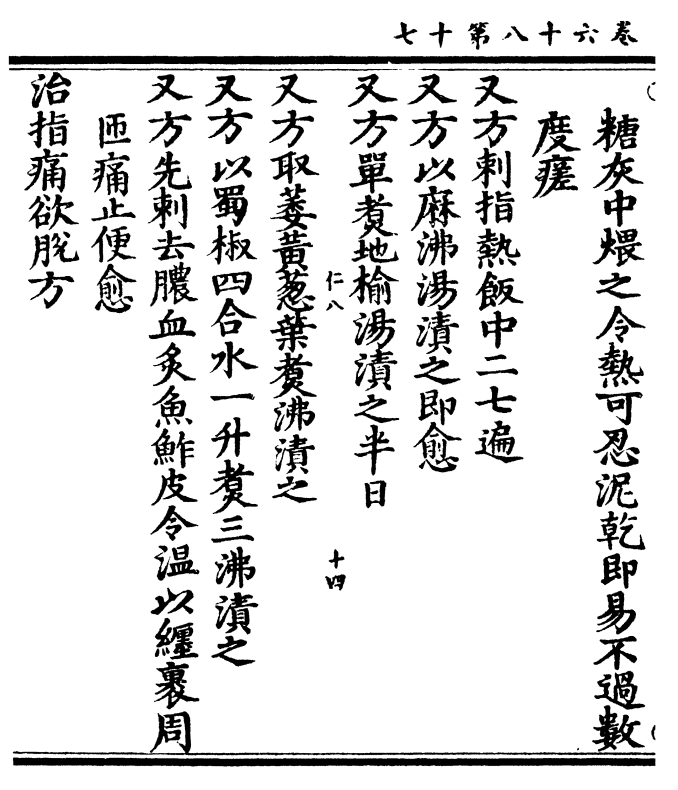 卷六十八第十七
糖灰中煨之令熱可忍泥乾即易不過數
度瘥
又方刺指熱飯中二七遍
又方以麻沸湯漬之即愈
又方單煑地榆湯漬之半日
仁八
十四
又方取萎黃葱葉煑沸漬之
又方以蜀椒四合水一升煑三沸漬之
又方先刺去膿血炙魚鮓皮令温以纏裹周
匝痛止便愈
治指痛欲脫方